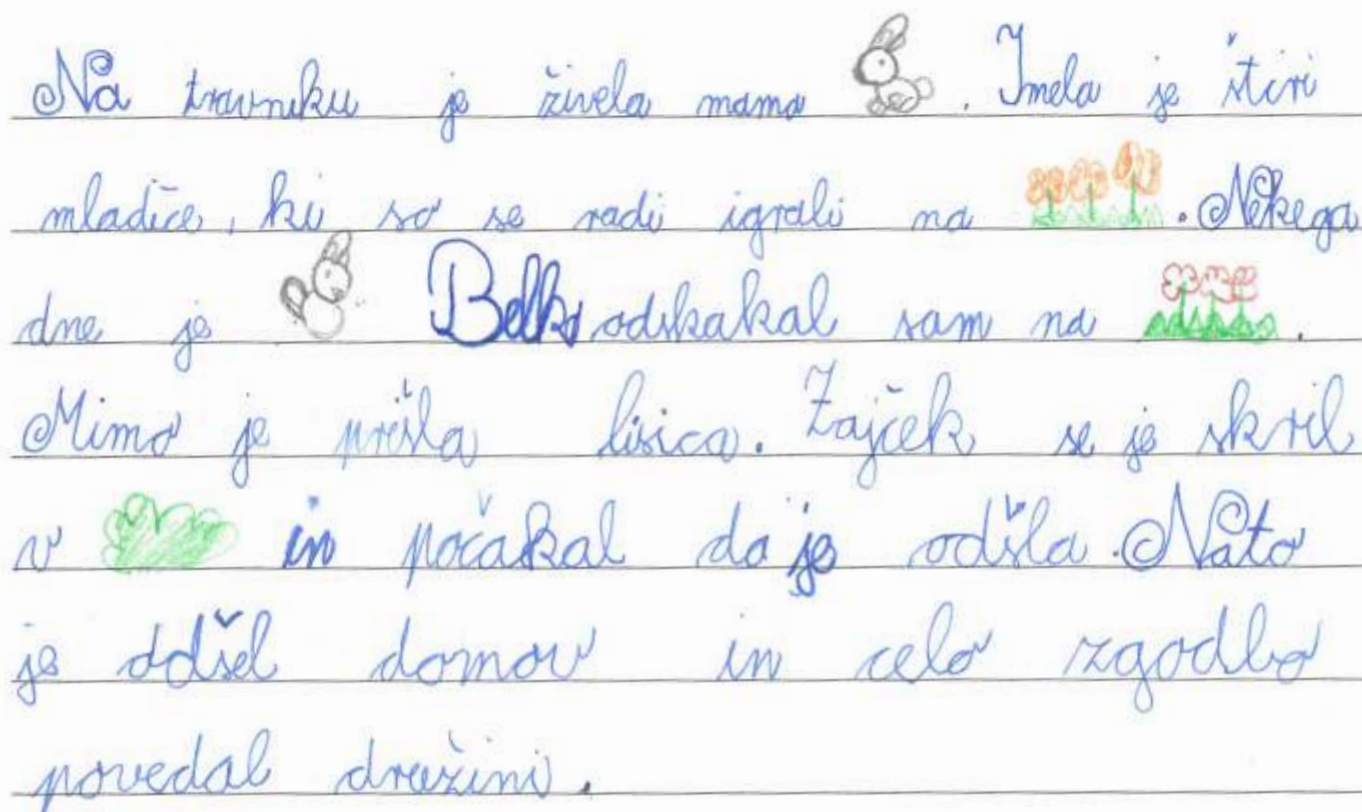 Na travniku je živela mama . Imela je štiri
mladiče, ki so se radi igrali na . Nekega
dne je Belko odskakal sam na .
Mimo je prišla lisica. Zajček se je skril
v in počakal da je odšla. Nato
je odšel domov in celo zgodbo
povedal družini.